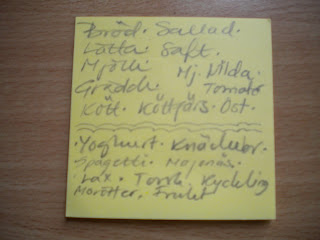 Bröd. Sallad.
Lätta Saft.
Mjölk Mj. Wilda.
Grädde Tomat
Kött. Köttfärs. Ost.
Yoghurt. Knäckebr.
Spagetti. Majonäs.
Lax. Torsk. Kyckling
Morötter. Frukt